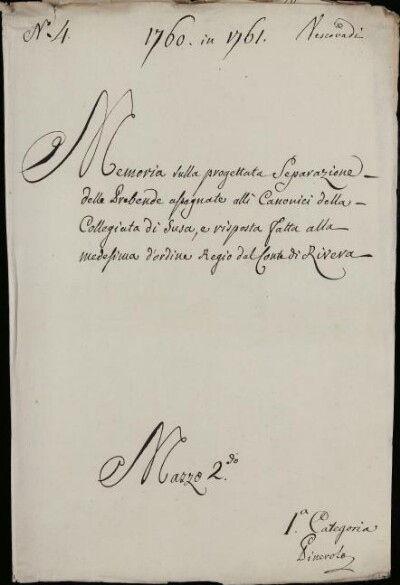 N.4
1760. in 1761.
Vescovadi
Memoria sulla progettata Separazione
delle Prebende assegnate alli Canonici della
Collegiata di Susa, e risposta fatta alla
medesima d'ordine Regio dal Conte di Rivera
Mazzo 2.do
1.a Categoria
Pinerolo